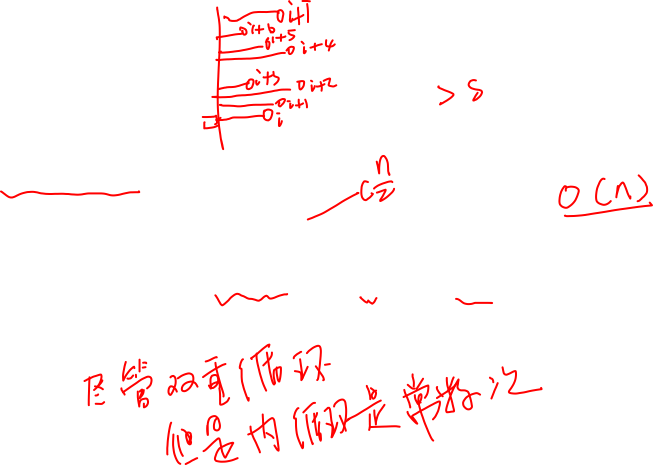 i+7
i+6
i+5
i+4
i+3
i+2
i+1
i
> δ
n
2
O(n)
尽管双重循环
但是内循环是常数次